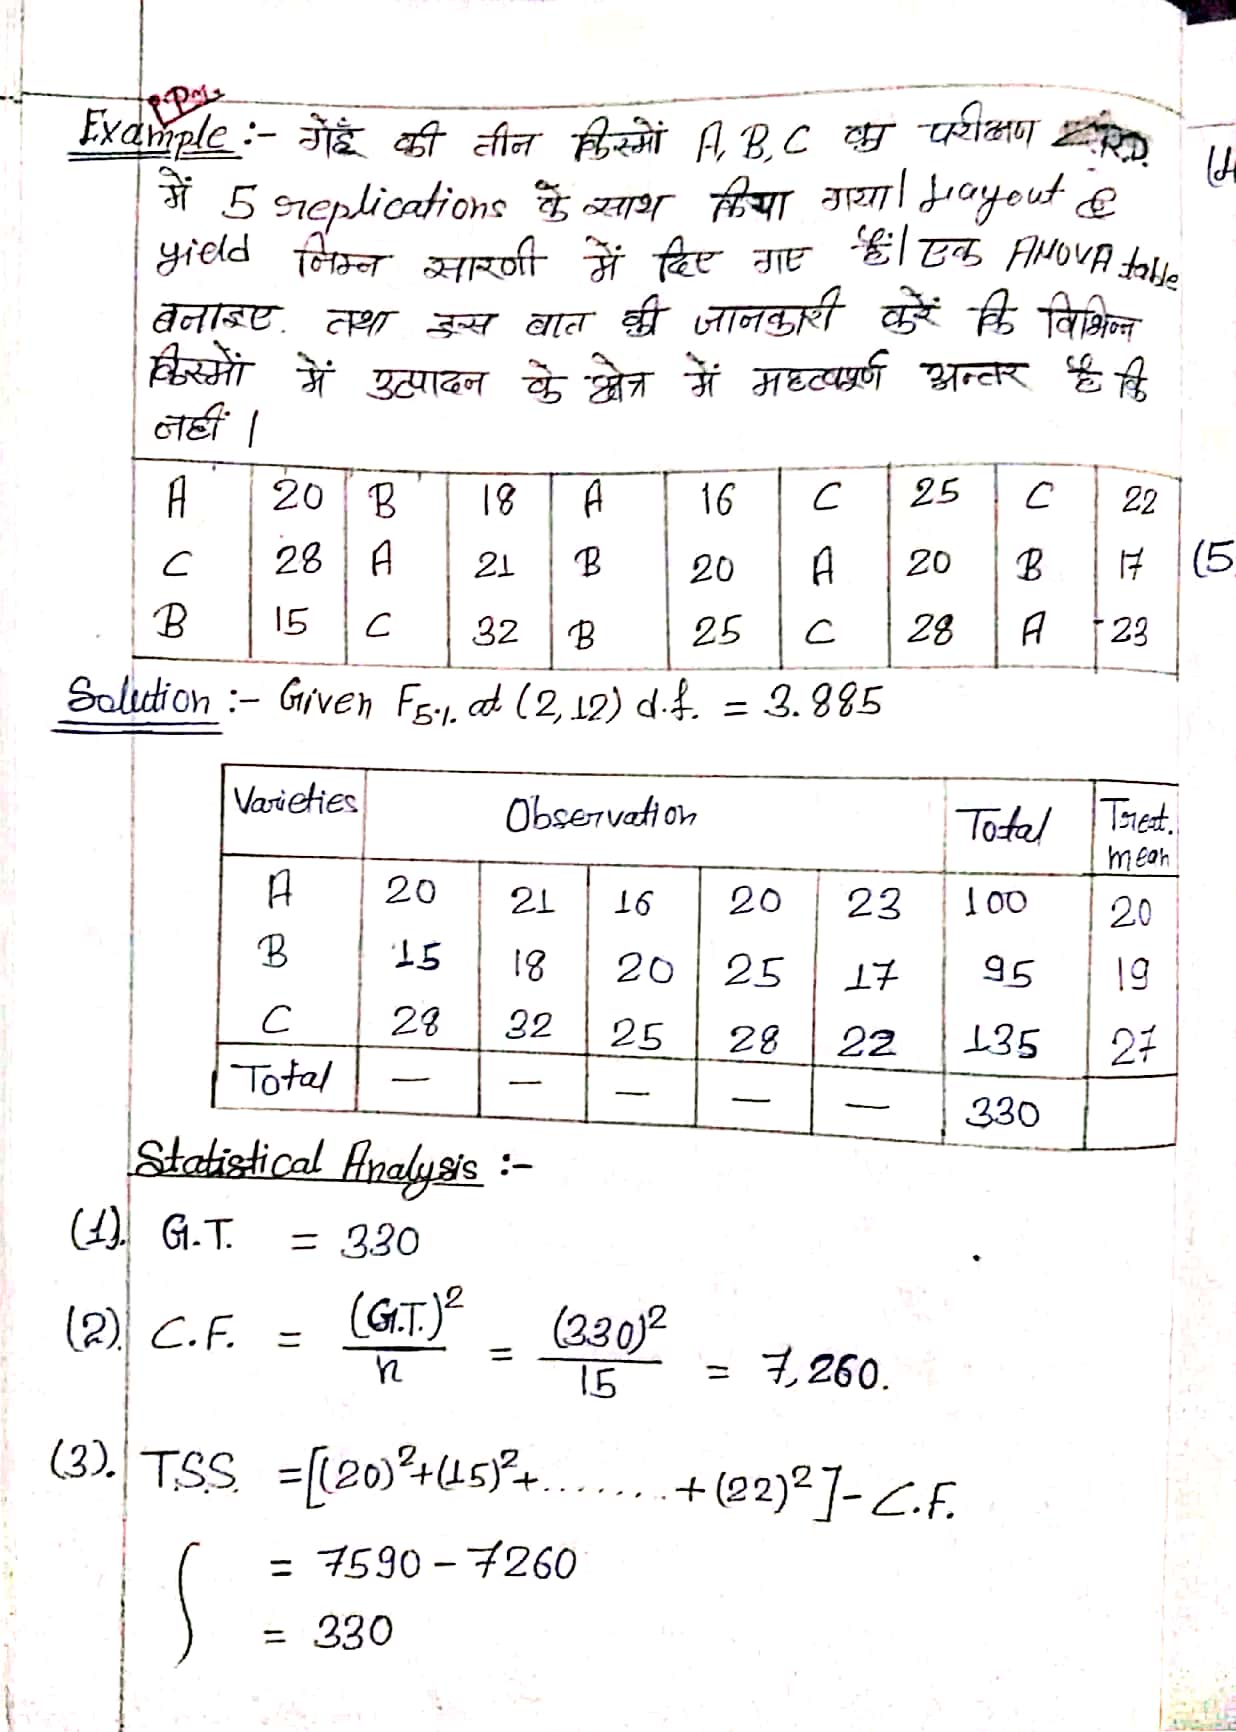 Example :- गेहूँ की तीन किस्मों A, B, C का परीक्षण C.R.D.
में 5 replications के साथ किया गया। Layout &
yield निम्न सारणी में दिए गए हैं। एक ANOVA table
बनाइए. तथा इस बात की जानकारी करें कि विभिन्न
किस्मों में उत्पादन के क्षेत्र में महत्वपूर्ण अन्तर है कि
नहीं।
A 20 B 18 A 16 C 25 C 22
C 28 A 21 B 20 A 20 B 17
B 15 C 32 B 25 C 28 A 23
(5
Solution :- Given F5%. at (2, 12) d.f. = 3.885
Varieties Observation Total Treat. mean
A 20 21 16 20 23 100 20
B 15 18 20 25 17 95 19
C 28 32 25 28 22 135 27
Total — — — — — 330
Statistical Analysis :-
(1). G.T. = 330
(2). C.F. = (G.T.)²/n = (330)²/15 = 7,260.
(3). T.S.S. = [(20)²+(15)²+........+(22)²]- C.F.
= 7590 - 7260
= 330